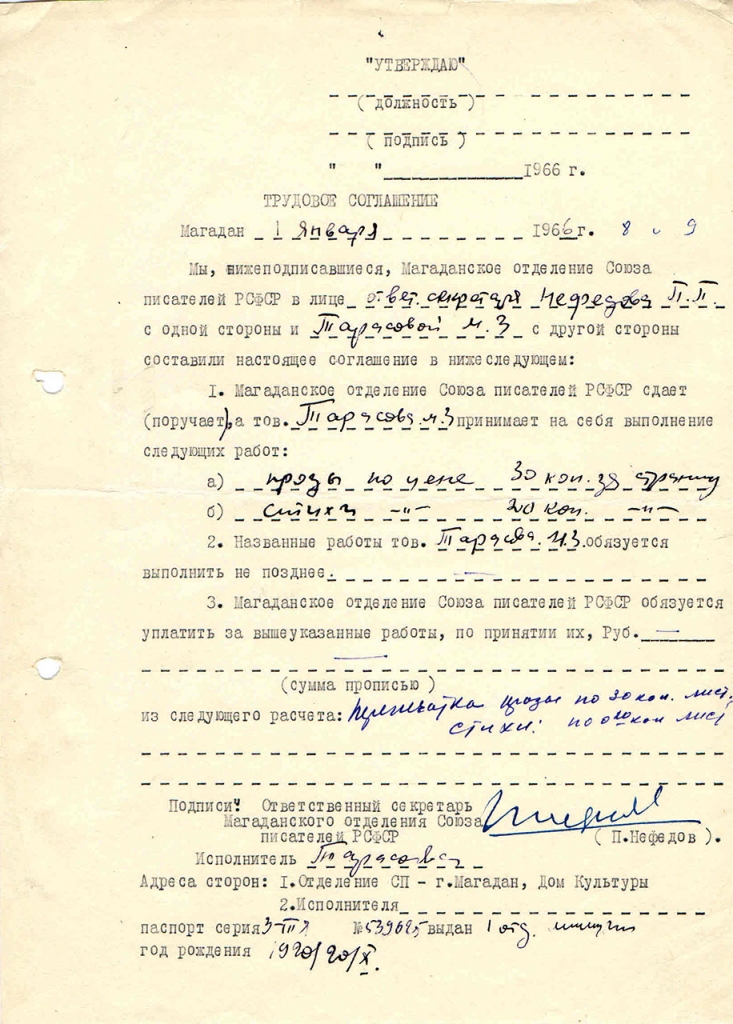 "УТВЕРЖДАЮ"
( ДОЛЖНОСТЬ )
( ПОДПИСЬ )
" " 1966 г.
ТРУДОВОЕ СОГЛАШЕНИЕ
Магадан 1 января 1966г. 8 и 9
Мы, нижеподписавшиеся, Магаданское отделение Союза
писателей РСФСР в лице ответ. секретаря Нефедова П.П.
с одной стороны и Тарасовой М.З с другой стороны
составили настоящее соглашение в нижеследующем:
I. Магаданское отделение Союза писателей РСФСР сдает
(поручает),а тов. Тарасова М.З принимает на себя выполнение
следующих работ:
а) прозы по цене 30 коп. за страницу
б) стихи -"- 20 коп. -"-
2. Названные работы тов. Тарасова М.З. обязуется
выполнить не позднее. —
3. Магаданское отделение Союза писателей РСФСР обязуется
уплатить за вышеуказанные работы, по принятии их, Руб. —
(сумма прописью )
из следующего расчета: Перепечатка прозы по 30 коп. лист.
стихи: по 20 коп лист
Подписи: Ответственный секретарь
Магаданского отделения Союза
писателей РСФСР ( П.Нефедов ).
Исполнитель Тарасова
Адреса сторон: I.Отделение СП - г.Магадан, Дом Культуры
2.Исполнителя
паспорт серия № выдан 1 отд. милиции
год рождения 1920/20/X.